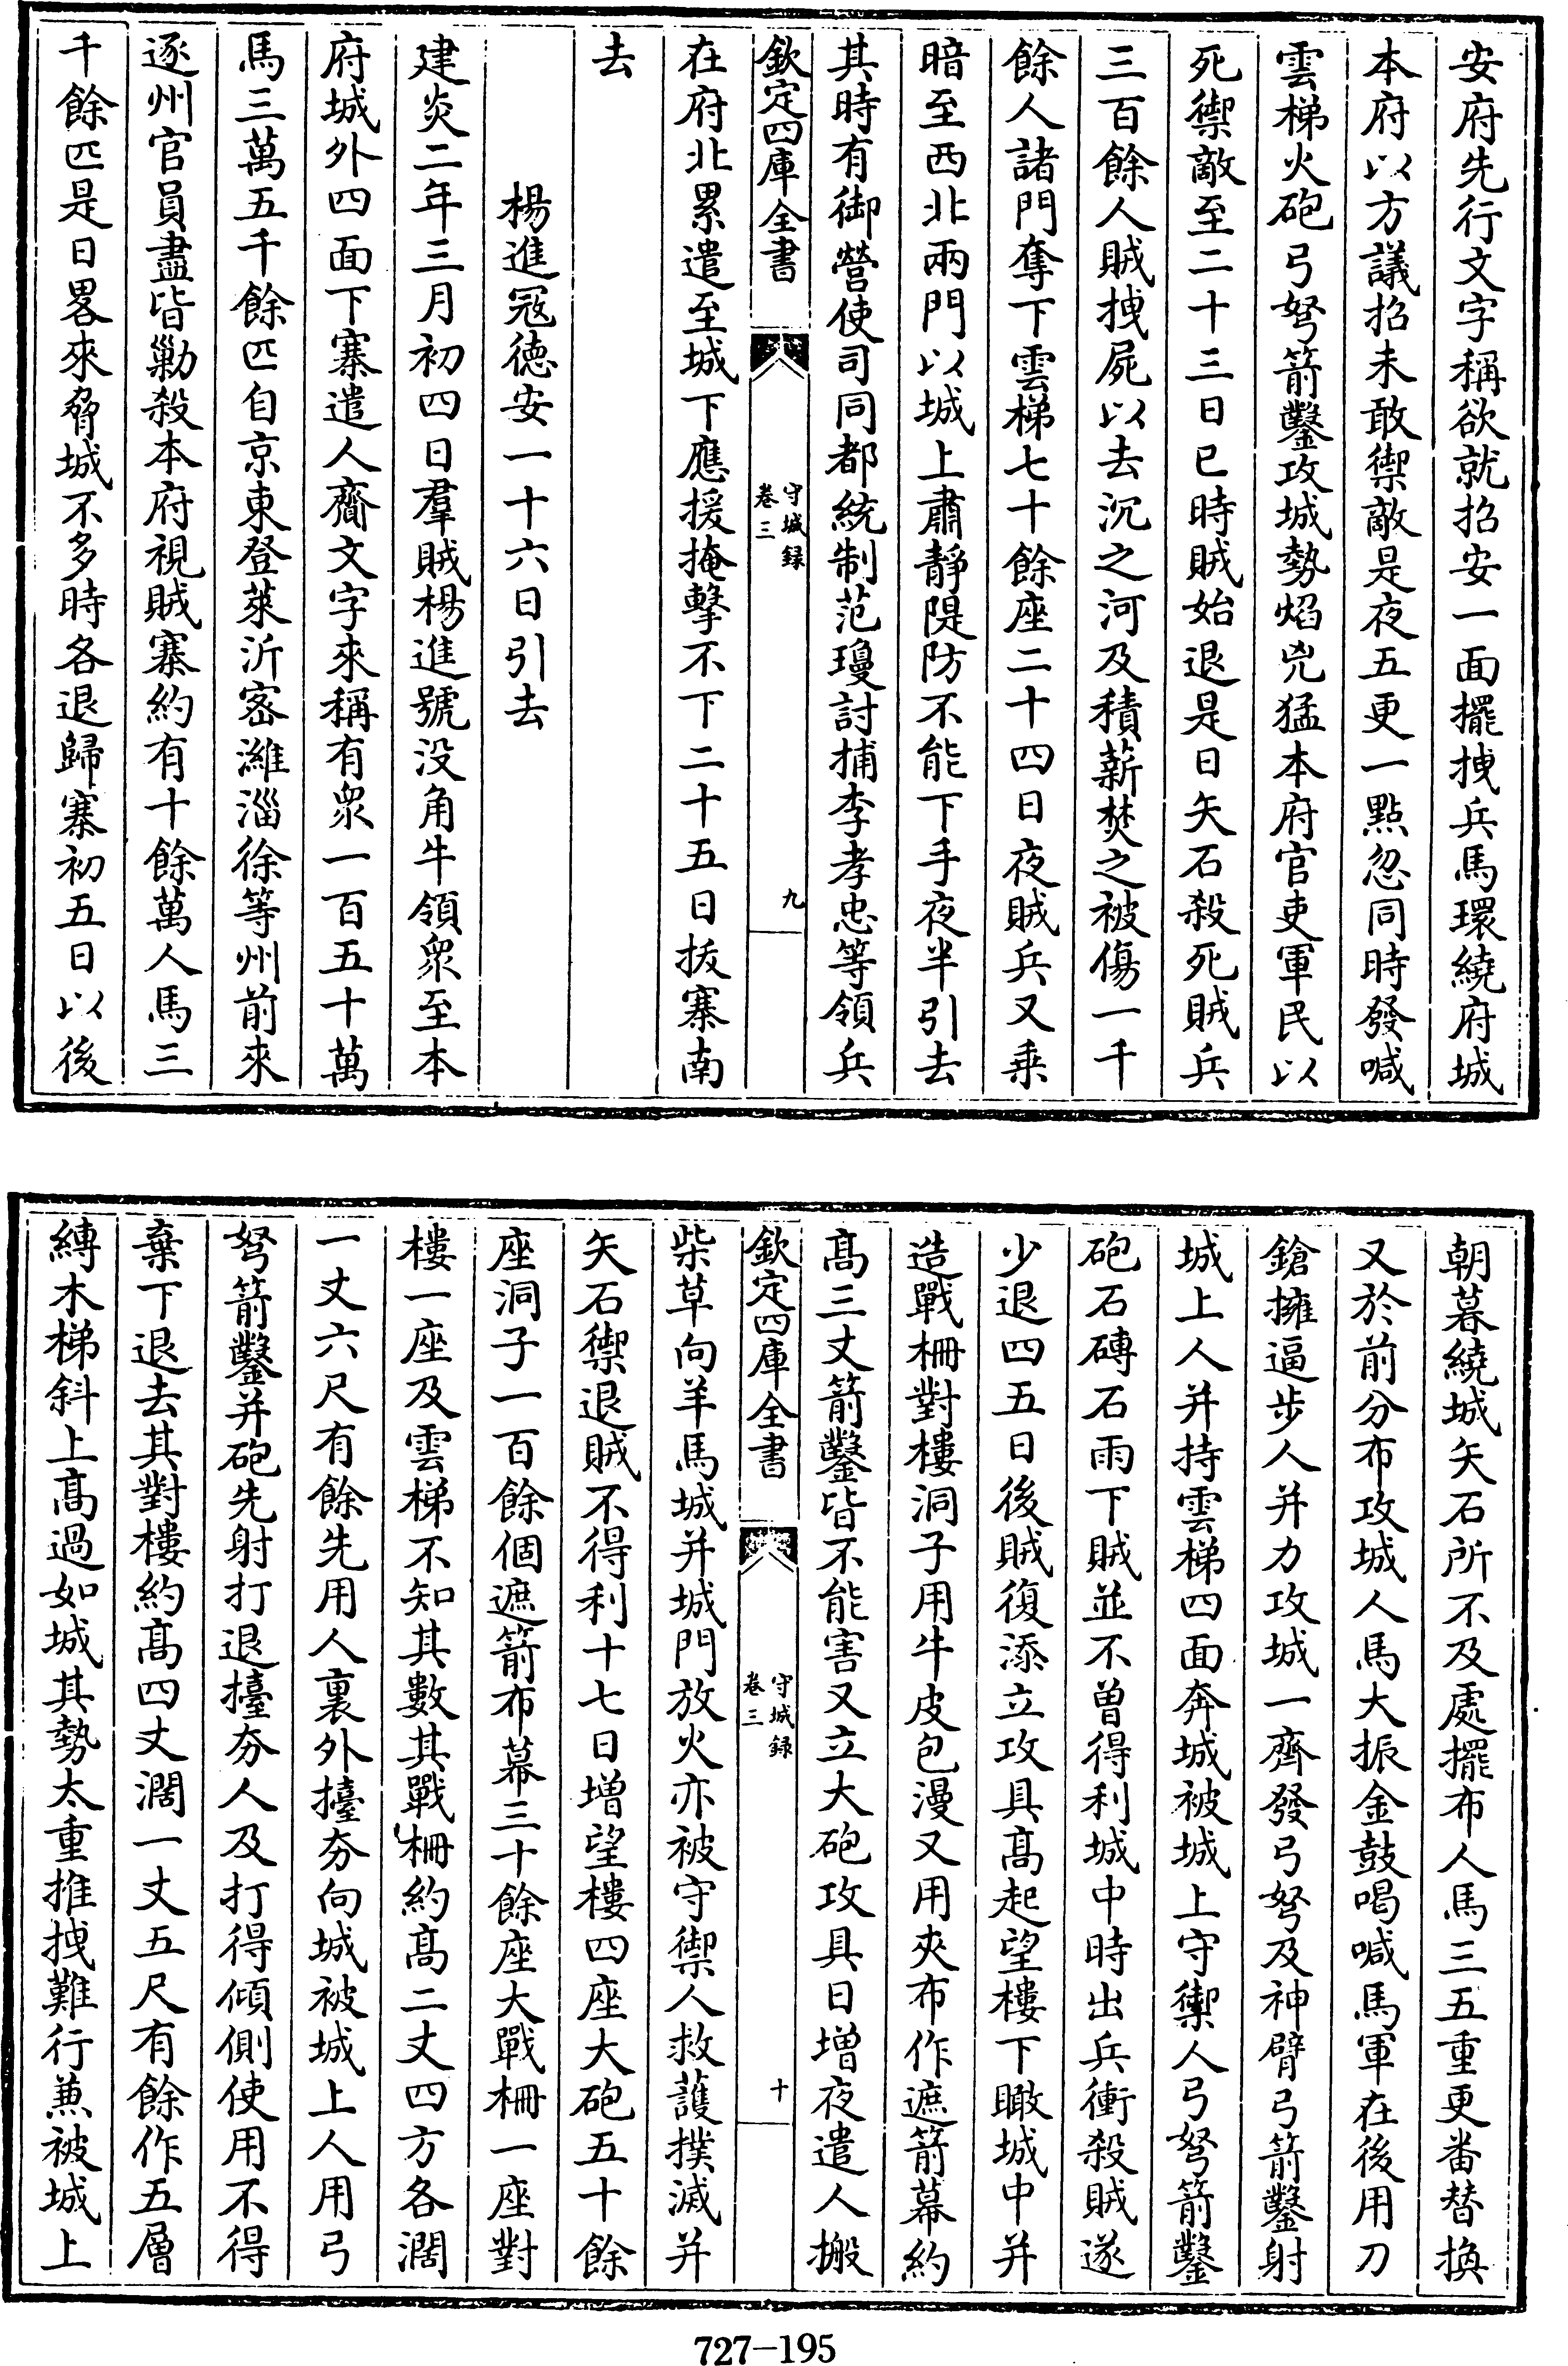 安府先行文字稱欲就招安一面擺拽兵馬環繞府城
本府以方議招未敢禦敵是夜五更一點忽同時發喊
雲梯火砲弓弩箭鑿攻城勢焰兇猛本府官吏軍民以
死禦敵至二十三日巳時賊始退是日矢石殺死賊兵
三百餘人賊拽屍以去沉之河及積薪焚之被傷一千
餘人諸門奪下雲梯七十餘座二十四日夜賊兵又乗
暗至西北兩門以城上肅靜隄防不能下手夜半引去
其時有御營使司同都統制范瓊討捕李孝忠等領兵
欽定四庫全書
守城録
卷三
九
在府北累遣至城下應援掩擊不下二十五日拔寨南
去
楊進冦德安一十六日引去
建炎二年三月初四日羣賊楊進號没角牛領衆至本
府城外四面下寨遣人齎文字來稱有衆一百五十萬
馬三萬五千餘匹自京東登萊沂密濰淄徐等州前來
逐州官員盡皆勦殺本府視賊寨約有十餘萬人馬三
千餘匹是日畧來脅城不多時各退歸寨初五日以後
朝暮繞城矢石所不及處擺布人馬三五重更番替換
又於前分布攻城人馬大振金鼓喝喊馬軍在後用刀
鎗擁逼步人并力攻城一齊發弓弩及神臂弓箭鑿射
城上人并持雲梯四面奔城被城上守禦人弓弩箭鑿
砲石磚石雨下賊並不曽得利城中時出兵衝殺賊遂
少退四五日後賊復添立攻具髙起望樓下瞰城中并
造戰栅對樓洞子用牛皮包漫又用夾布作遮箭幕約
髙三丈箭鑿皆不能害又立大砲攻具日增夜遣人搬
欽定四庫全書
守城録
卷三
十
柴草向羊馬城并城門放火亦被守禦人救護撲滅并
矢石禦退賊不得利十七日增望樓四座大砲五十餘
座洞子一百餘個遮箭布幕三十餘座大戰栅一座對
樓一座及雲梯不知其數其戰栅約髙二丈四方各濶
一丈六尺有餘先用人裏外擡夯向城被城上人用弓
弩箭鑿并砲先射打退擡夯人及打得傾側使用不得
棄下退去其對樓約髙四丈濶一丈五尺有餘作五層
縛木梯斜上髙過如城其勢太重推拽難行兼被城上
727-195